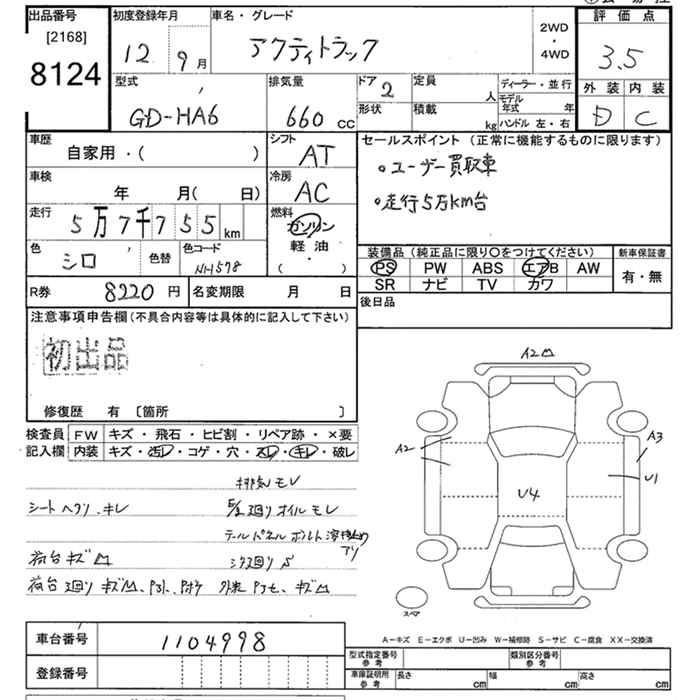 出品番号
[2168]
8124
初度登録年月
12 9月
車名・グレード
アクティトラック
2WD
・
4WD
評価点
3.5
外装 内装
D C
型式
GD-HA6
排気量
660 cc
ドア
2
形状
定員
人
積載
kg
ディーラー・並行
モデル年式 年
ハンドル 左・右
車歴
自家用・( )
シフト
AT
車検
年 月( 日)
冷房
AC
走行
5万7千755km
燃料
ガソリン
軽油
・
( )
色
シロ
色替
色コード
NH578
R券 8220円
名変期限 月 日
セールスポイント (正常に機能するものに限ります)
。ユーザー買取車
。走行5万km台
装備品(純正品に限り〇をつけてください)
PS PW ABS エアB AW
SR ナビ TV カワ
新車保証書
有・無
後日品
注意事項申告欄(不具合内容等は具体的に記入して下さい)
初出品
修復歴 有 〔箇所 〕
検査員記入欄
FW キズ・飛石・ヒビ割・リペア跡・×要
内装 キズ・汚レ・コゲ・穴・スレ・キレ・破レ
排気モレ
シートヘタリ、キレ
廻りオイルモレ
テールパネルボルト溶接止め
アリ
荷台キズ凹
シタ廻りS
荷台廻りキズ凹、
キズ凹
A2凹
A2
A3
U1
U4
スペア
A-キズ E-エクボ U-凹み W-補修跡 S-サビ C-腐食 XX-交換済
車台番号 1104998
登録番号
型式指定番号
参考
類別区分番号
参考
車庫証明用
参考
長さ cm
幅 cm
高さ cm